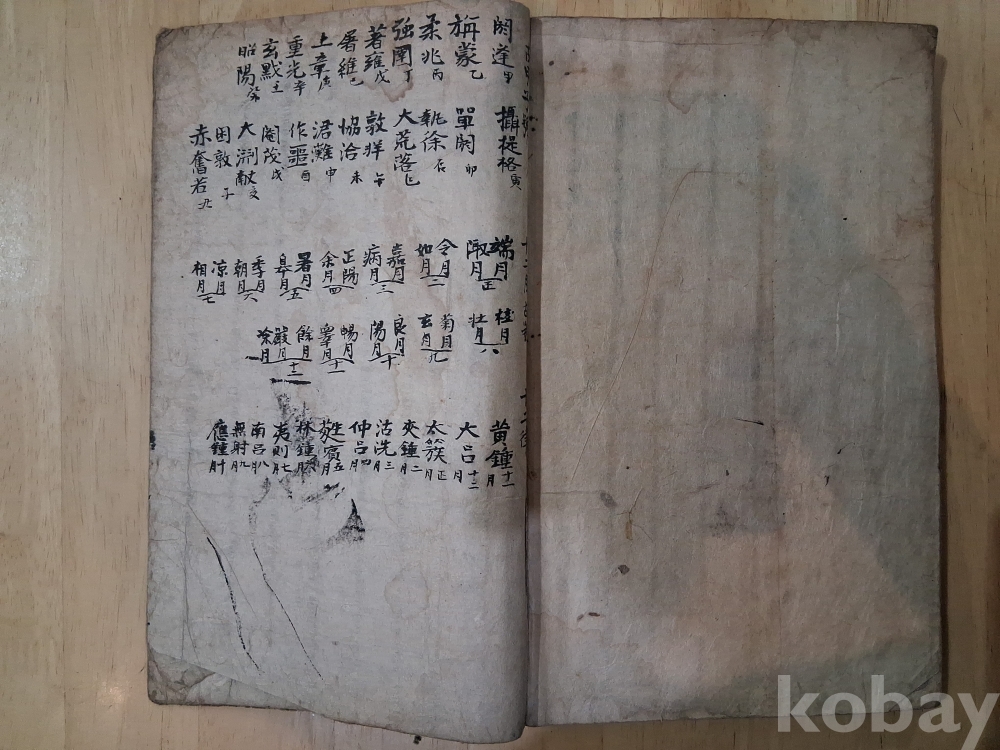 閼逢甲
旃蒙乙
柔兆丙
強圉丁
著雍戊
屠維己
上章庚
重光辛
玄黓壬
昭陽癸
攝提格寅
單閼卯
執徐辰
大荒落巳
敦牂午
協洽未
涒灘申
作噩酉
閹茂戌
大淵献亥
困敦子
赤奮若丑
端月
陬月正
令月
如月二
嘉月
病月三
正陽
余月四
暑月
皋月五
季月
朝月六
凉月
相月七
桂月
壮月八
菊月
玄月九
良月
陽月十
暢月
辜月十一
餘月
嚴月
涂月十二
黄鍾十一月
大呂十二月
太簇正月
夾鍾二月
沽洗三月
仲呂四月
蕤賓五月
林鍾六月
夷則七月
南呂八月
無射九月
應鍾十月
kobay